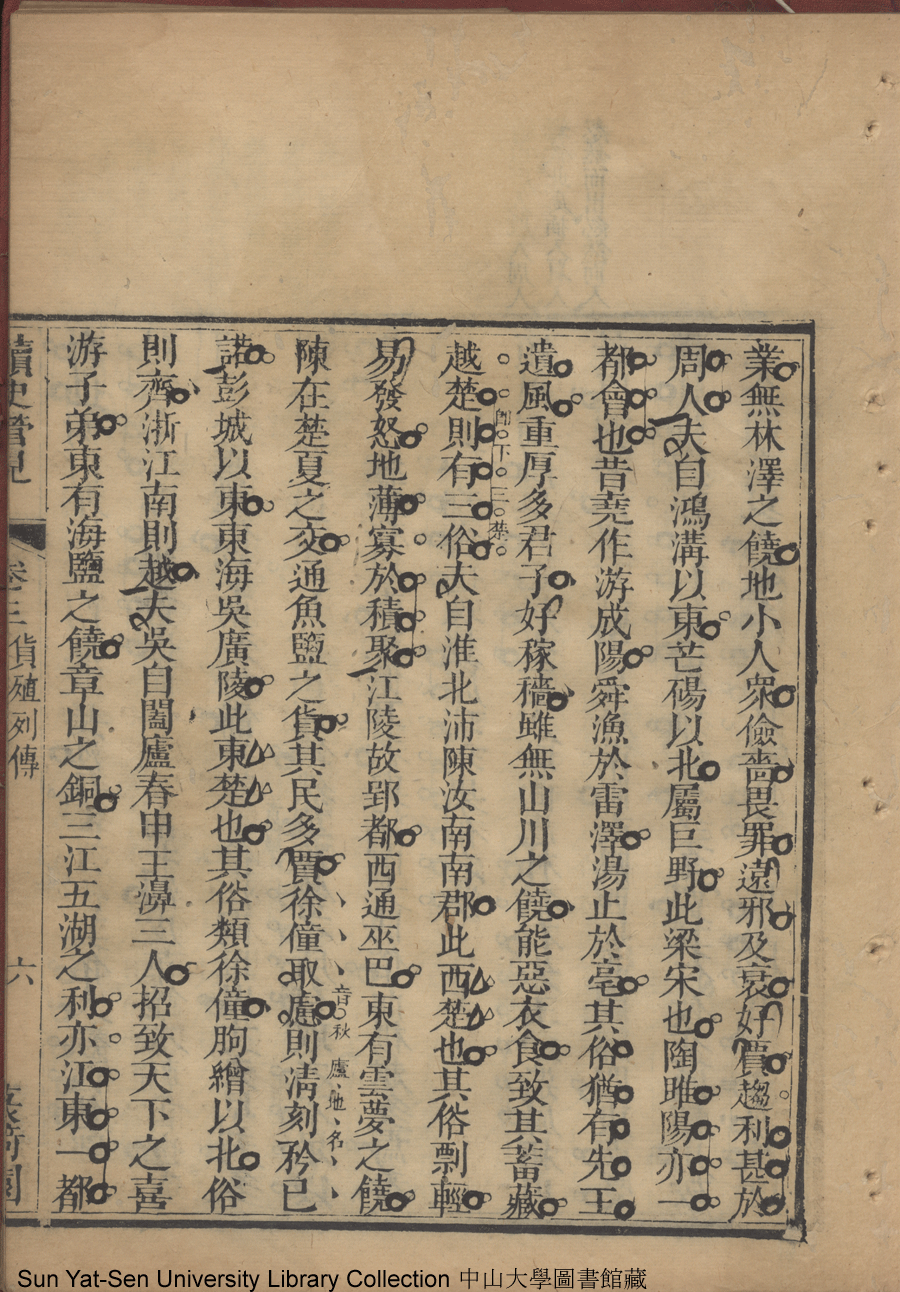 業無林澤之饒地小人衆儉嗇畏罪遠邪及衰好賈趨利甚於
周人夫自鴻溝以東芒碭以北屬巨野此梁宋也陶睢陽亦一
都會也昔堯作游成陽舜漁於雷澤湯止於亳其俗猶有先王
遺風重厚多君子好稼穡雖無山川之饒能惡衣食致其蓄藏
越楚則有三俗夫自淮北沛陳汝南南郡此西楚也其俗剽輕
易發怒地薄寡於積聚江陵故郢都西通巫巴東有雲夢之饒
陳在楚夏之交通魚鹽之貨其民多賈徐僮取慮則淸刻矜已
諾彭城以東東海吳廣陵此東楚也其俗類徐僮朐繒以北俗
則齊浙江南則越夫吳自闔廬春申王濞三人招致天下之喜
游子弟東有海鹽之饒章山之銅三江五湖之利亦江東一都
開下三楚
音秋廬地名
讀史管見
卷三貨殖列傳
六
Sun Yat-Sen University Library Collection 中山大學圖書館藏